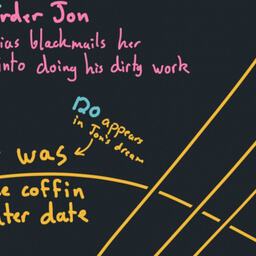 rder Jon
ias blackmails her
into doing his dirty work
Do appears
in Jon's dream
was
e coffin
ter date